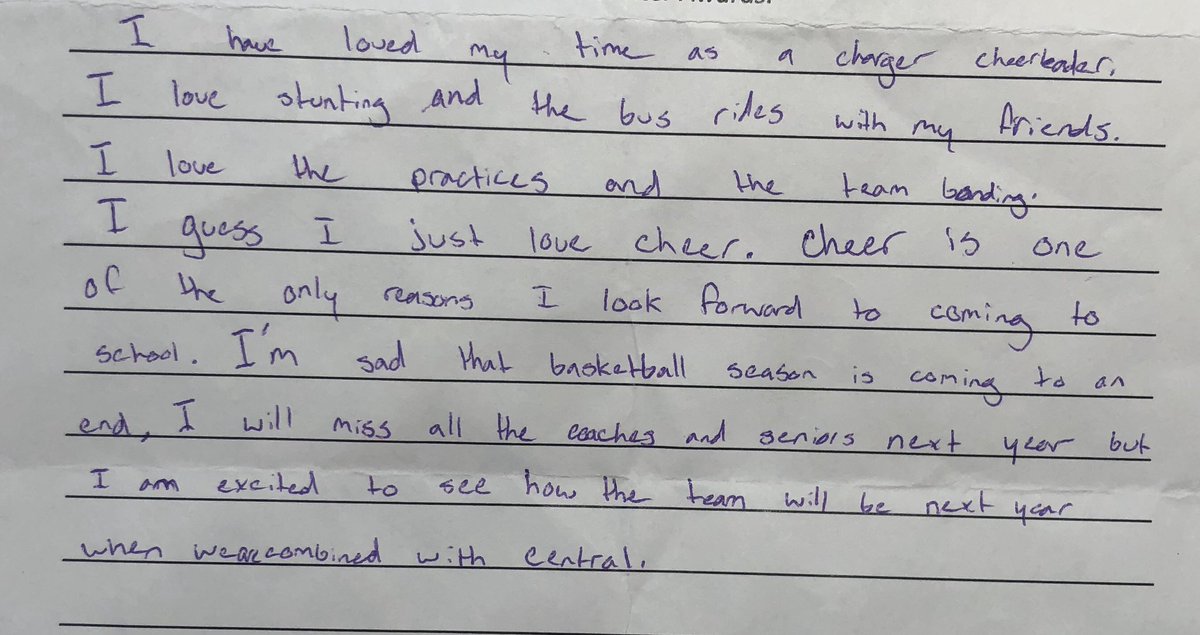 I have loved my time as a charger cheerleader.
I love stunting and the bus rides with my friends.
I love the practices and the team bonding.
I guess I just love cheer. Cheer is one
of the only reasons I look forward to coming to
school. I'm sad that basketball season is coming to an
end, I will miss all the coaches and seniors next year but
I am excited to see how the team will be next year
when we are combined with central.